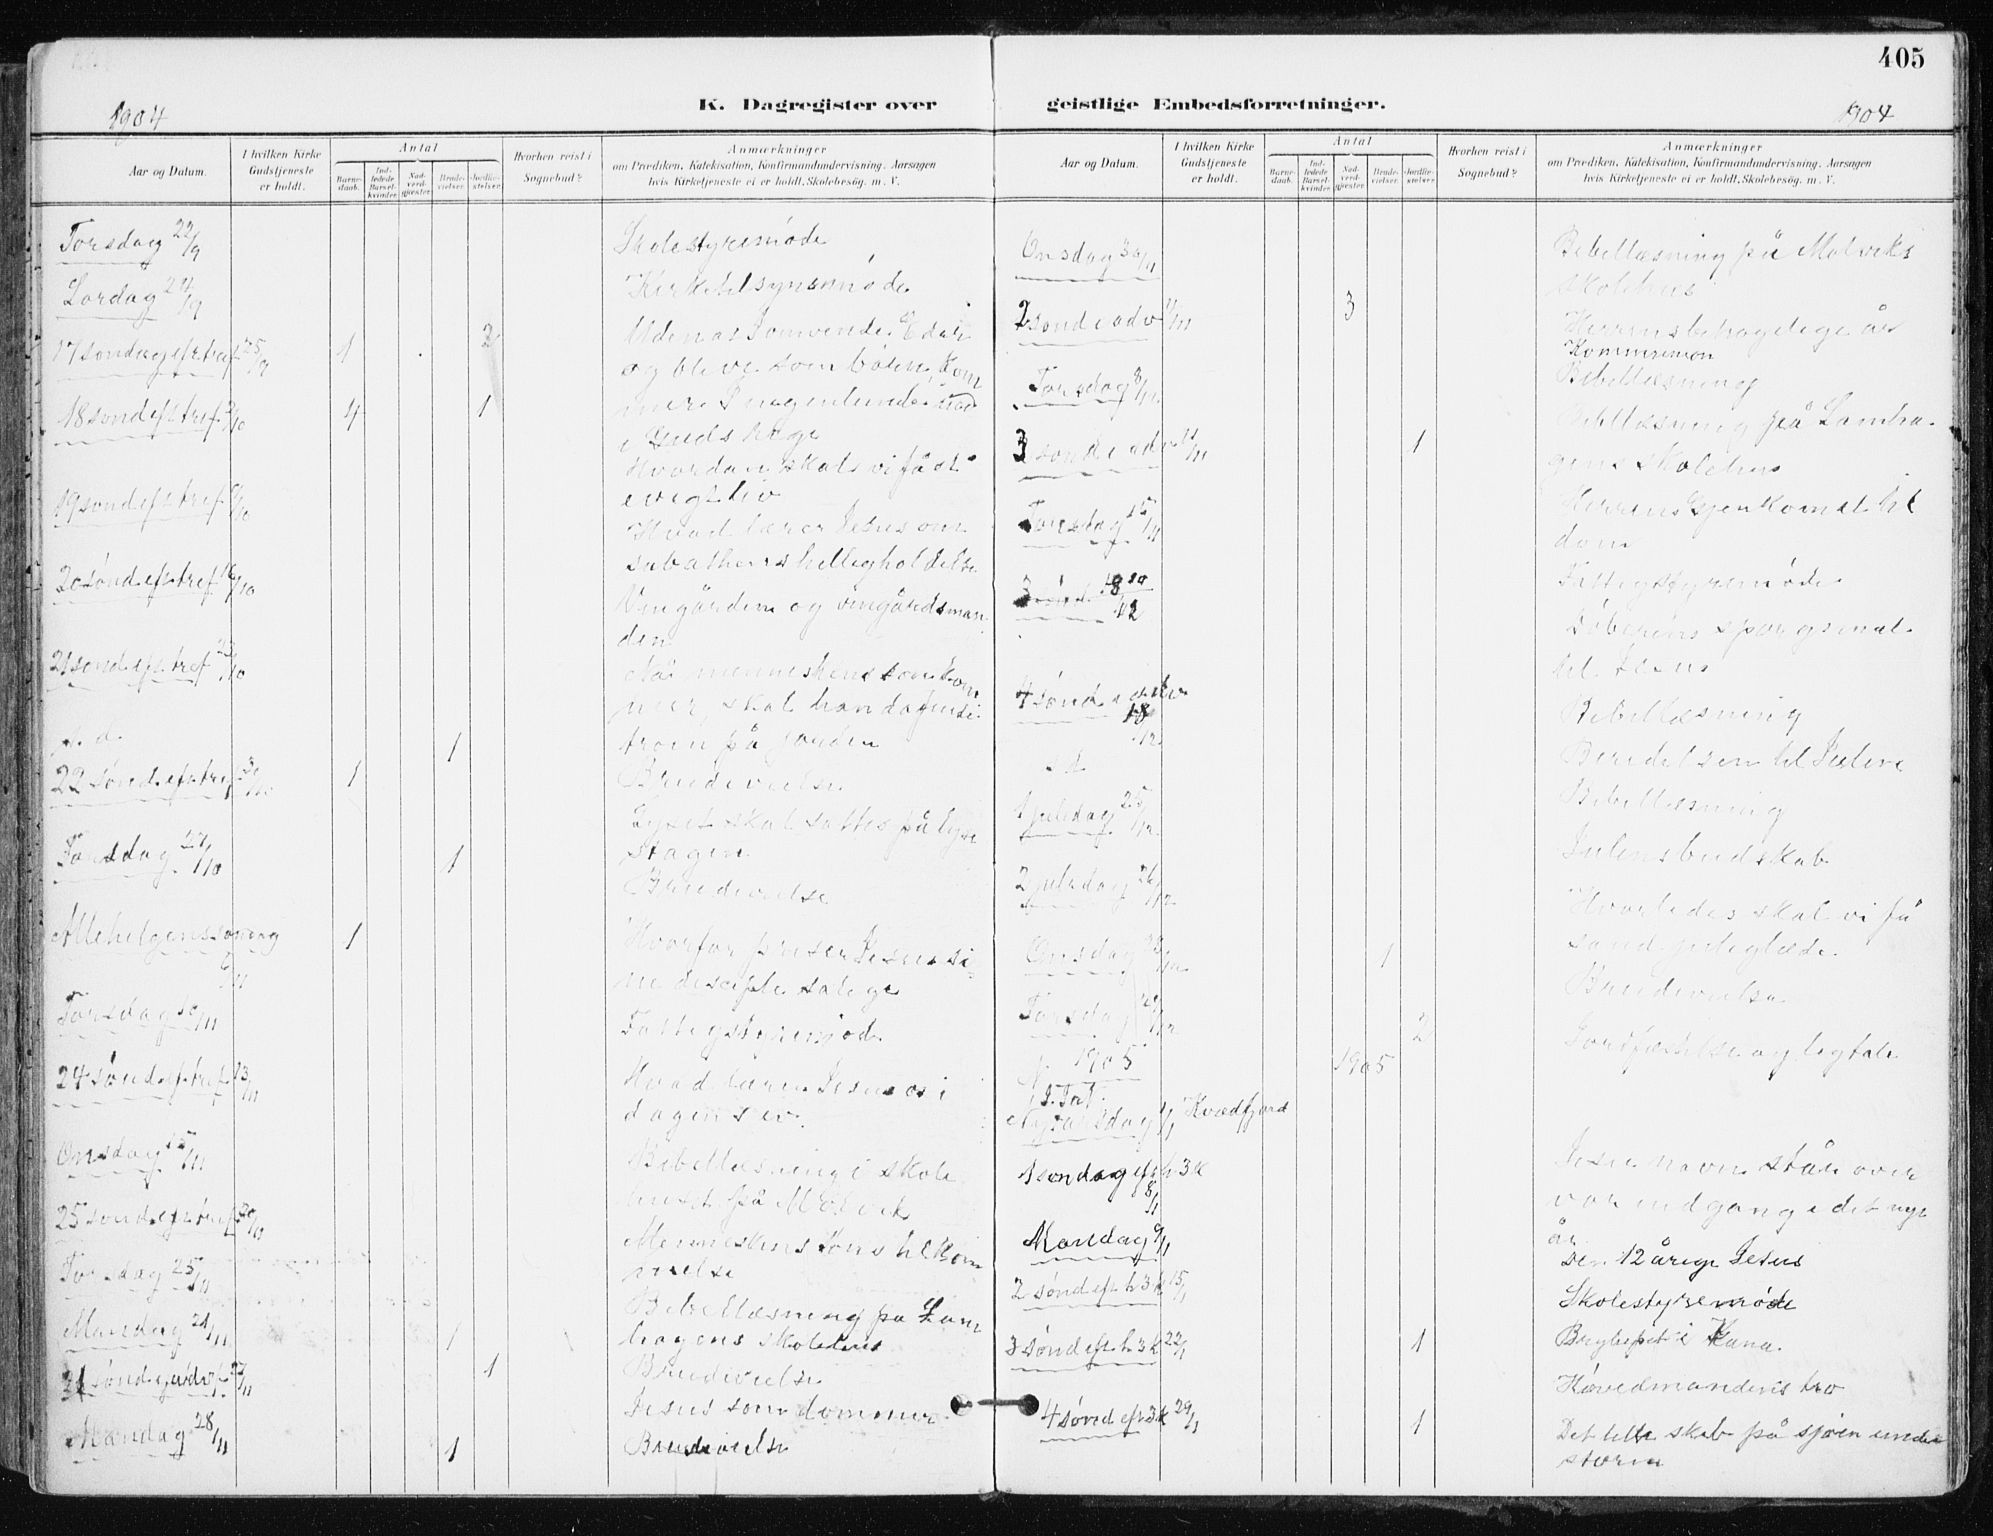 405
1904
K. Dagregister over
geistlige Embedsforretninger.
1904
Aar og Datum.
I hvilken Kirke
Gudstjeneste
er holdt.
Antal
Barne-
daab.
Ind-
ledede
Barsel-
kvinder.
Nad-
verd-
gjester.
Brude-
vielser.
Jordfæ-
stelser.
Hvorhen reist i
Sognebud?
Anmærkninger
om Prædiken, Katekisation, Konfirmandundervisning, Aarsagen
hvis Kirketjeneste ei er holdt, Skolebesög. m. V.
Torsdag 22/9
Skolestyremøde
Lørdag 24/9
Kirketilsynsmøde
17 søndag eft tref 25/9 1 2
Uden at I omvender Eder
og blive som børn, kom
mer I ingenlunde ind
i Guds rige
18 sønd eft tref 2/10 4 1
Hvordan skal vi få et
evigt liv
19 sønd eft tref 9/10
Hvad lærer Jesus om
sabathens helligholdelse
20 sønd eft tref 16/10
Vingården og vingårdsman
den
21 sønd eft tref 23/10
Når menneskens søn kom
mer, skal han da finde
troen på jorden
s. d. 1
Brudevielse
22 sønd eft tref 30/10 1
Lyset skal sættes på lyse
stagen
Torsdag 27/10 1
Brudevielse
Allehelgenssøndag 6/11 1
Hvorfor priser Jesus si-
ne disciple salige
Torsdag 10/11
Fattigstyremøde
24 sønd eft tref 13/11
Hvad lærer Jesus os i
dagens ev.
Onsdag /11
Bibellæsning i skole
huset på Molvik
25 sønd eft tref 20/11
Menneskens søns tilkom
melse
Torsdag 25/11
Bibellæsning på Lam
hagens skolehus
Mandag /11 1
Brudevielse
1 sønd i adv 27/11 1
Jesus som dommer
Mandag 28/11 1
Brudevielse
Aar og Datum.
I hvilken Kirke
Gudstjeneste
er holdt.
Antal
Barne-
daab.
Ind-
ledede
Barsel-
kvinder.
Nad-
verd-
gjester.
Brude-
vielser.
Jordfæ-
stelser.
Hvorhen reist i
Sognebud?
Anmærkninger
om Prædiken, Katekisation, Konfirmandundervisning, Aarsagen
hvis Kirketjeneste ei er holdt, Skolebesög. m. V.
Onsdag 30/11
Bibellæsning på Molviks
skolehus
2 sønd i adv 3
Herrens behagelige år
Kommunion
Torsdag 8/12
Bibellæsning
Bibellæsning på Lamha-
gens skolehus
3 sønd i adv 1
Herrens gjenkomst til
dom
Torsdag 15
Fattigstyremøde
Døberens spørgsmål
til Jesus
4 sønd i adv 18/12
Bibellæsning
Beredelsen til Julen
s d
Bibellæsning
1 juledag 25/12
Julens budskab
2 juledag 26/12
Hvorledes skal vi få
sand juleglæde
Onsdag 28/12 1
Brudevielse
Torsdag 29/12 2
Jordfæstelse og ligtale
1905
1905
Nyårsdag 1/1 Kvædfjord
Jesu navn står over
vor indgang i det nye
år
1 søndag eft h 3 k 8/1
Den 12 årige Jesus
Mandag 9/1
Skolestyremøde
2 sønd eft h 3 k 15/1
Bryllupet i Kana.
3 sønd eft h 3 k 22/1 1
Høvedmandens tro
4 sønd eft 3 k 29/1 1
Det lille skib på sjøen under
storm